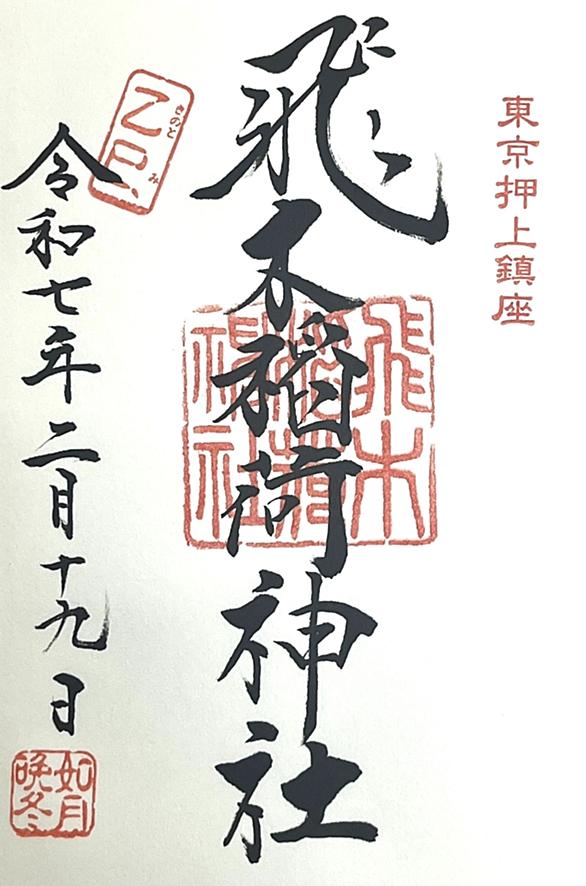 東京押上鎮座
飛木稲荷神社
飛木
稲荷
神社
乙巳
きのと
み
令和七年二月十九日
如月
晩冬